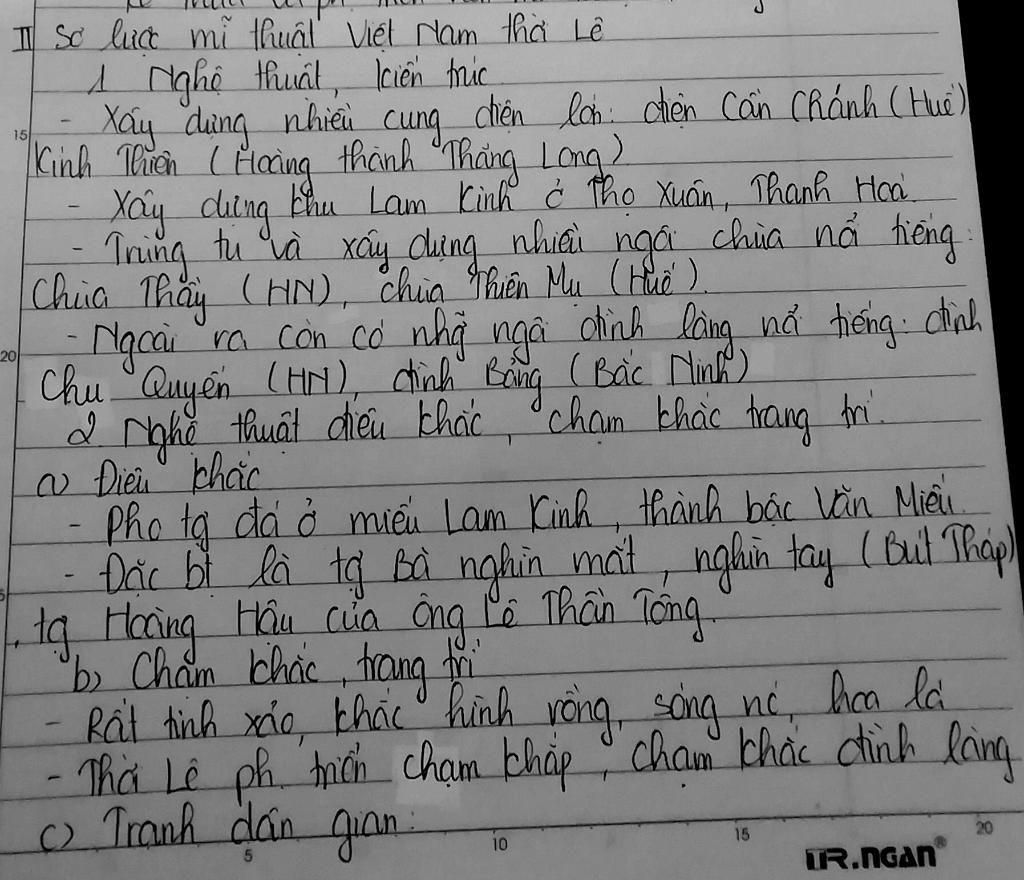 II Sơ lược mĩ thuật Việt Nam thời Lê
1 Nghệ thuật, kiến trúc
- Xây dựng nhiều cung điện lớn: điện Cần Chánh (Huế)
Kính Thiên (Hoàng thành Thăng Long)
- Xây dựng khu Lam Kinh ở Thọ Xuân, Thanh Hoá.
- Trùng tu và xây dựng nhiều ngôi chùa nổ tiếng:
Chùa Thầy (HN), chùa Thiên Mụ (Huế).
- Ngoài ra còn có nhữg ngôi đình làng nổ tiếng: đình
Chu Quyến (HN), đình Bảng (Bắc Ninh)
2 Nghệ thuật điêu khắc, chạm khắc trang trí.
a) Điêu khắc
- Pho tg đá ở miếu Lam Kinh, thành bậc Văn Miếu.
- Đặc bt là tg Bà nghìn mắt, nghìn tay (Bút Tháp)
, tg Hoàng Hậu của ông Lê Thần Tông.
b) Chạm khắc, trang trí
- Rất tinh xảo, khắc hình rồng, sóng nc, hoa lá
- Thời Lê ph. triển chạm khắp, chạm khắc đình làng
c) Tranh dân gian:
15
20
5
10
15
20
TR.NGAN®